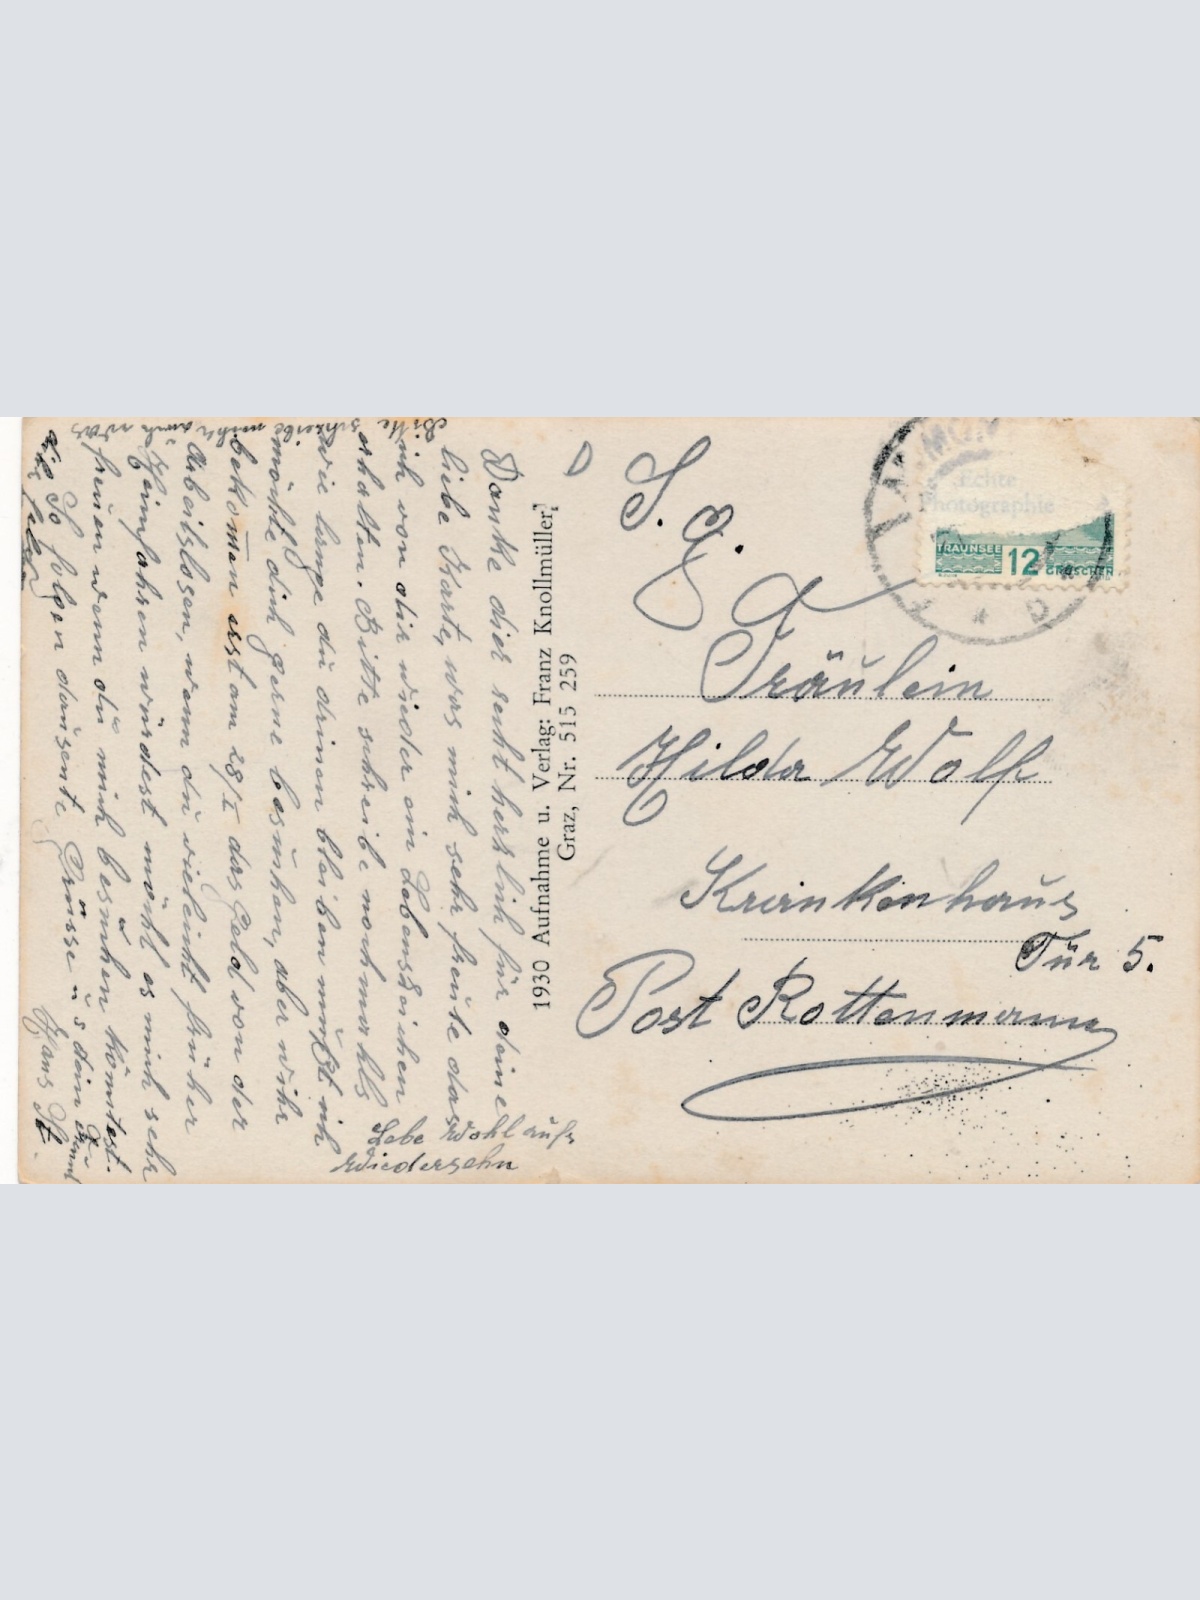 Danke dir recht herzlich für deine
liebe Karte, was mich sehr freute das
ich von dir wieder ein Lebenszeichen
erhalten. Bitte schreibe nochmahls
wie lange du drinnen bleiben mußt ich
möchte dich gerne besuchen, aber wihr
bekom̅en erst am 28/I das Geld von der
Arbeitslosen, wenn du vieleicht früher
Heimfahren würdest möcht es mich sehr
freuen wenn du mich besuchen könntest.
So folgen dausente Grüsse u
Hans St.
Lebe Wohl aufs
Wiedersehn
Bitte schreibe mihr auch was
dir fehlt
1930 Aufnahme u. Verlag: Franz Knollmüller,
Graz, Nr. 515 259
S. g.
Fräulein
Hilda Wolf
Krankenhaus
Tür 5.
Post Rottenmann
Echte
Photographie
TRAUNSEE 12 GROSCHEN